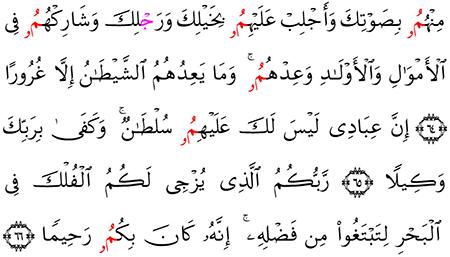 مِنْهُمُۥ بِصَوْتِكَ وَأَجْلِبْ عَلَيْهِمُۥ بِخَيْلِكَ وَرَجْلِكَ وَشَارِكْهُمُۥ فِى
ٱلْأَمْوَٰلِ وَٱلْأَوْلَـٰدِ وَعِدْهُمُۥ ۚ وَمَا يَعِدُهُمُ ٱلشَّيْطَـٰنُ إِلَّا غُرُورًا
﴿٦٤﴾ إِنَّ عِبَادِى لَيْسَ لَكَ عَلَيْهِمُۥ سُلْطَـٰنٌ ۚ وَكَفَىٰ بِرَبِّكَ
وَكِيلًا ﴿٦٥﴾ رَّبُّكُمُ ٱلَّذِى يُزْجِى لَكُمُ ٱلْفُلْكَ فِى
ٱلْبَحْرِ لِتَبْتَغُوا۟ مِن فَضْلِهِۦٓ ۚ إِنَّهُۥ كَانَ بِكُمُۥ رَحِيمًا ﴿٦٦﴾